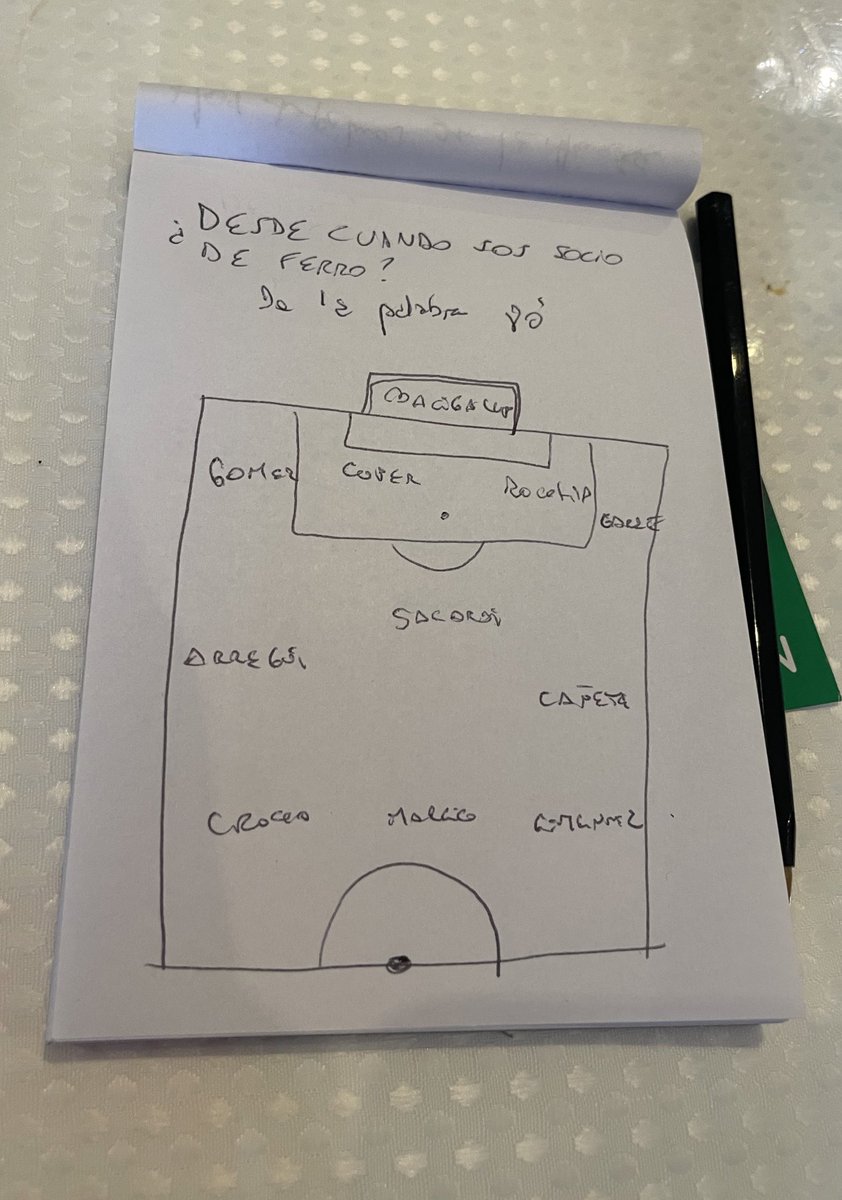 ¿DESDE CUANDO SOS SOCIO
DE FERRO?
De la palabra yo
GOMEZ CUPER ROCCHIA
GARRE
SACARDI
ARREGUI
CAÑETE
CROCCO MARCICO GIMENEZ